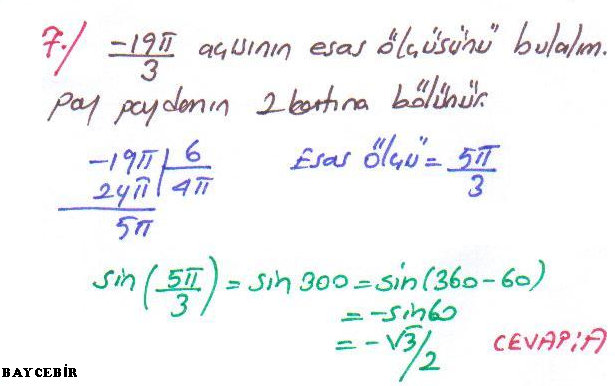 7./ -19π/3 açısının esas ölçüsünü bulalım.
Pay paydanın 2 katına bölünür.
-19π | 6
24π | 4π
5π
Esas Ölçü = 5π/3
sin(5π/3) = sin 300 = sin(360-60)
= -sin60
= -√3/2
CEVAP:A
BAYCEBİR